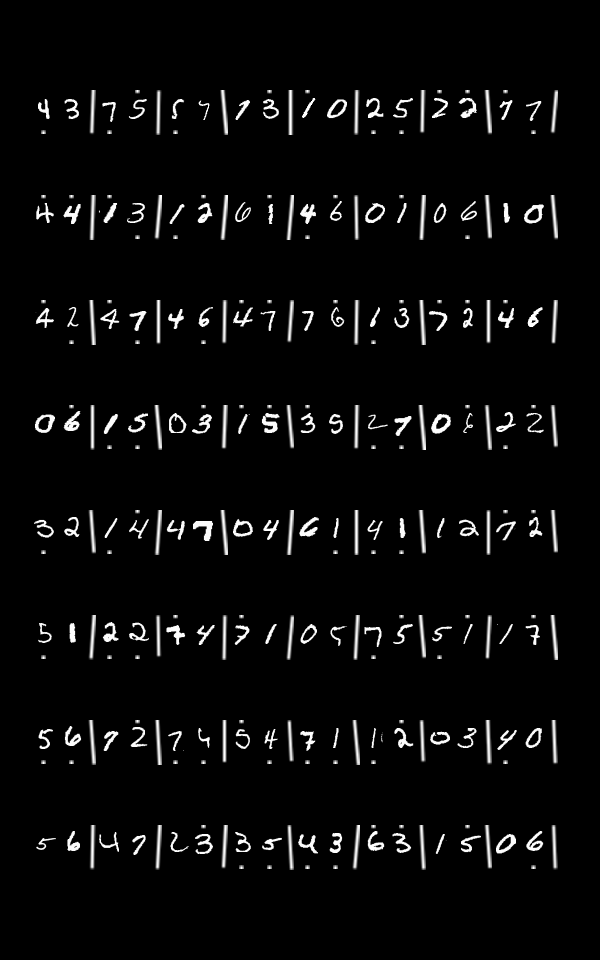 4 3 | 7 5 | 5 7 | 1 3 | 1 0 | 2 5 | 2 2 | 7 7 |
4 4 | 1 3 | 1 2 | 6 1 | 4 6 | 0 1 | 0 6 | 1 0 |
4 2 | 4 7 | 4 6 | 4 7 | 7 6 | 1 3 | 7 2 | 4 6 |
0 6 | 1 5 | 0 3 | 1 5 | 3 5 | 2 7 | 0 6 | 2 2 |
3 2 | 1 4 | 4 7 | 0 4 | 6 1 | 4 1 | 1 2 | 7 2 |
5 1 | 2 2 | 7 4 | 7 1 | 0 5 | 7 5 | 5 1 | 1 7 |
5 6 | 7 2 | 7 4 | 5 4 | 7 1 | 1 2 | 0 3 | 4 0 |
5 6 | 4 7 | 2 3 | 3 5 | 4 3 | 6 3 | 1 5 | 0 6 |